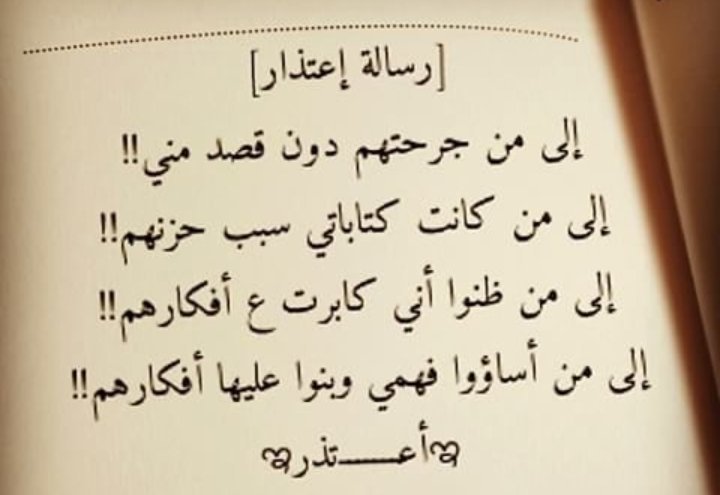 [رسالة إعتذار]
إلى من جرحتهم دون قصد مني!!
إلى من كانت كتاباتي سبب حزنهم!!
إلى من ظنوا أني كابرت ع أفكارهم!!
إلى من أساؤوا فهمي وبنوا عليها أفكارهم!!
أعـــــتذر